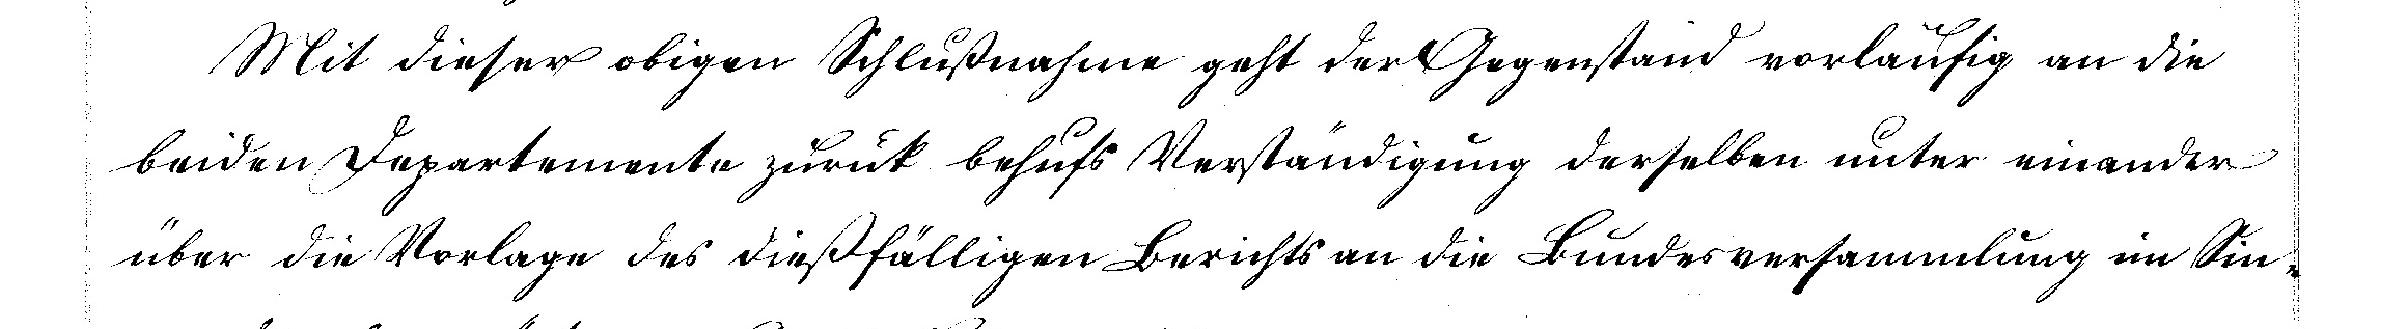 Mit dieser obigen Schlußnahme geht der Gegenstand vorläufig an die
beiden Departemente zurük behufs Verständigung derselben unter einander
über die Vorlage des dießfälligen Berichts an die Bundesversammlung im Sin-